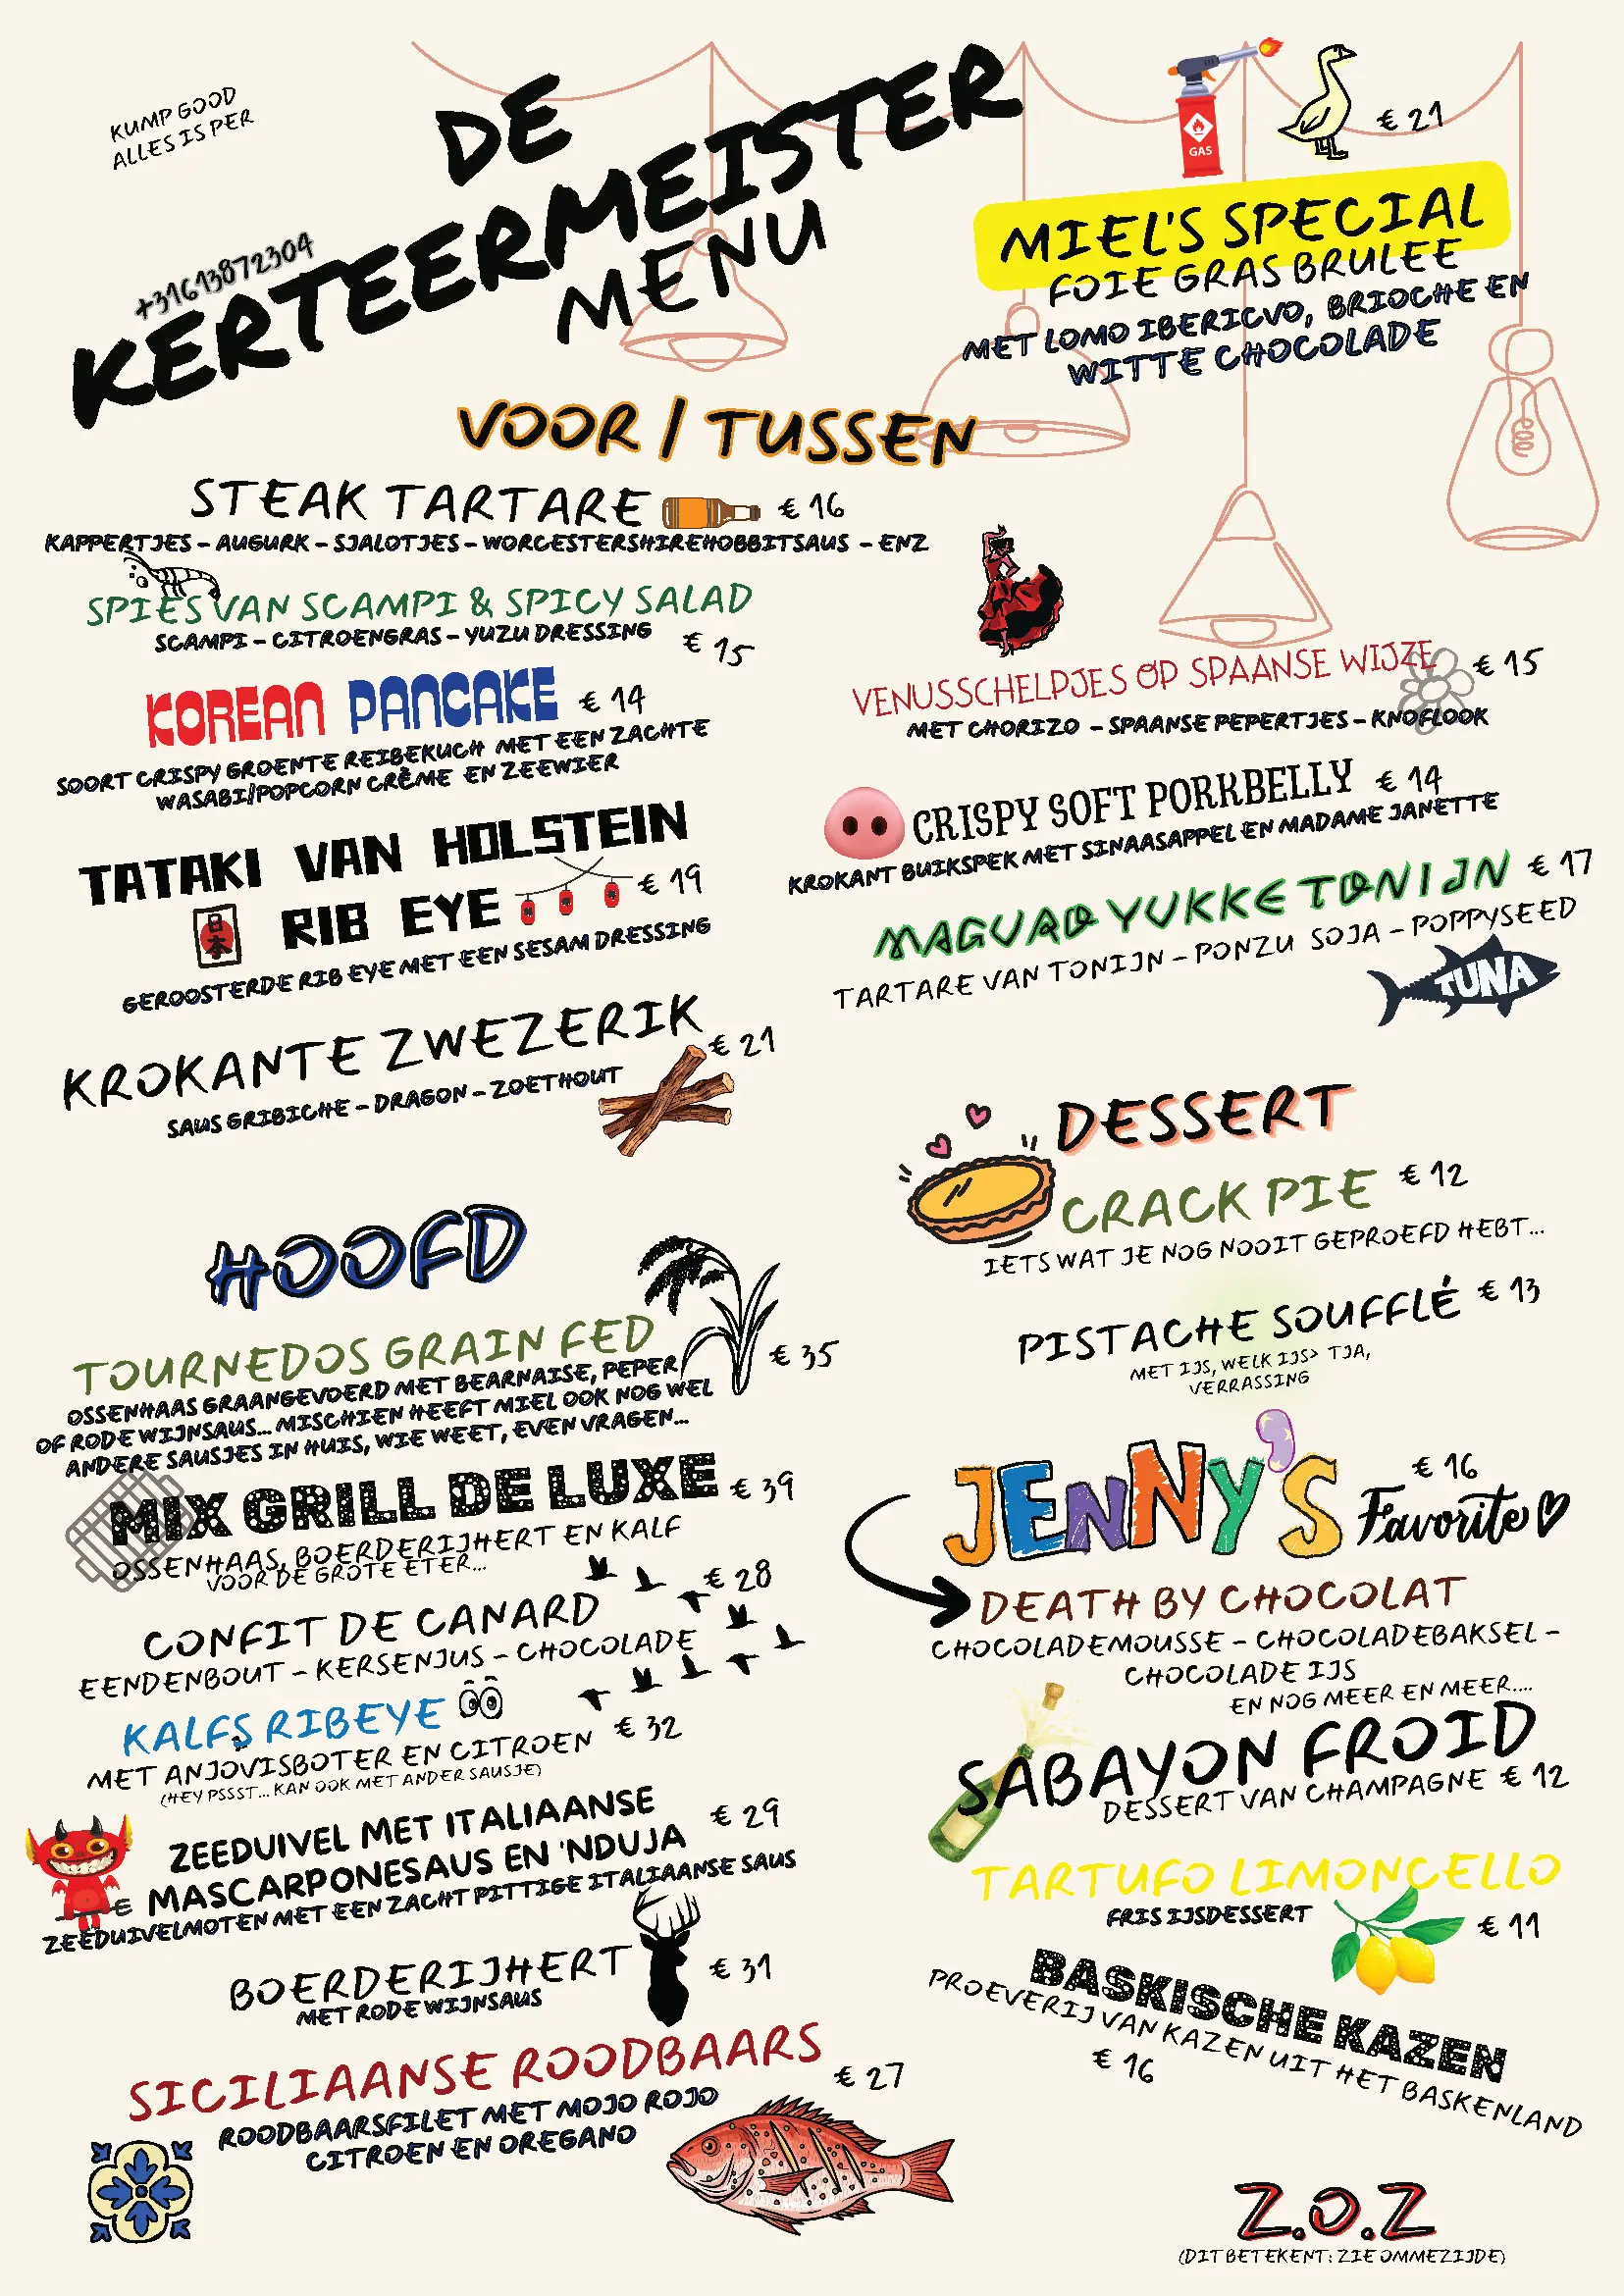 KUMP GOOD
ALLES IS PER
DE
KERTEERMEISTER
MENU
+31613872304
GAS
€ 21
MIEL'S SPECIAL
FOIE GRAS BRULEE
MET LOMO IBERICVO, BRIOCHE EN
WITTE CHOCOLADE
VOOR / TUSSEN
STEAK TARTARE € 16
KAPPERTJES – AUGURK – SJALOTJES – WORCESTERSHIREHOBBITSAUS – ENZ
SPIES VAN SCAMPI & SPICY SALAD
SCAMPI – CITROENGRAS – YUZU DRESSING € 15
KOREAN PANCAKE € 14
SOORT CRISPY GROENTE REIBEKUCH MET EEN ZACHTE
WASABI/POPCORN CRÈME EN ZEEWIER
TATAKI VAN HOLSTEIN
日本 RIB EYE € 19
GEROOSTERDE RIB EYE MET EEN SESAM DRESSING
KROKANTE ZWEZERIK € 21
SAUS GRIBICHE – DRAGON – ZOETHOUT
VENUSSCHELPJES OP SPAANSE WIJZE € 15
MET CHORIZO – SPAANSE PEPERTJES – KNOFLOOK
CRISPY SOFT PORKBELLY € 14
KROKANT BUIKSPEK MET SINAASAPPEL EN MADAME JANETTE
MAGURO YUKKE TONIJN € 17
TARTARE VAN TONIJN – PONZU SOJA – POPPYSEED
TUNA
HOOFD
TOURNEDOS GRAIN FED € 35
OSSENHAAS GRAANGEVOERD MET BEARNAISE, PEPER
OF RODE WIJNSAUS... MISCHIEN HEEFT MIEL OOK NOG WEL
ANDERE SAUSJES IN HUIS, WIE WEET, EVEN VRAGEN...
MIX GRILL DE LUXE € 39
OSSENHAAS, BOERDERIJHERT EN KALF
VOOR DE GROTE ETER...
CONFIT DE CANARD € 28
EENDENBOUT – KERSENJUS – CHOCOLADE
KALFS RIBEYE € 32
MET ANJOVISBOTER EN CITROEN
(HEY PSSST... KAN OOK MET ANDER SAUSJE)
ZEEDUIVEL MET ITALIAANSE € 29
MASCARPONESAUS EN 'NDUJA
€
ZEEDUIVELMOTEN MET EEN ZACHT PITTIGE ITALIAANSE SAUS
BOERDERIJHERT € 31
MET RODE WIJNSAUS
SICILIAANSE ROODBAARS € 27
ROODBAARSFILET MET MOJO ROJO
CITROEN EN OREGANO
DESSERT
CRACK PIE € 12
IETS WAT JE NOG NOOIT GEPROEFD HEBT...
PISTACHE SOUFFLÉ € 13
MET IJS, WELK IJS> TJA,
VERRASSING
JENNY'S Favorite € 16
DEATH BY CHOCOLAT
CHOCOLADEMOUSSE – CHOCOLADEBAKSEL –
CHOCOLADE IJS
EN NOG MEER EN MEER....
SABAYON FROID
DESSERT VAN CHAMPAGNE € 12
TARTUFO LIMONCELLO
FRIS IJSDESSERT € 11
BASKISCHE KAZEN
PROEVERIJ VAN KAZEN UIT HET BASKENLAND
€ 16
Z.O.Z
(DIT BETEKENT: ZIE OMMEZIJDE)